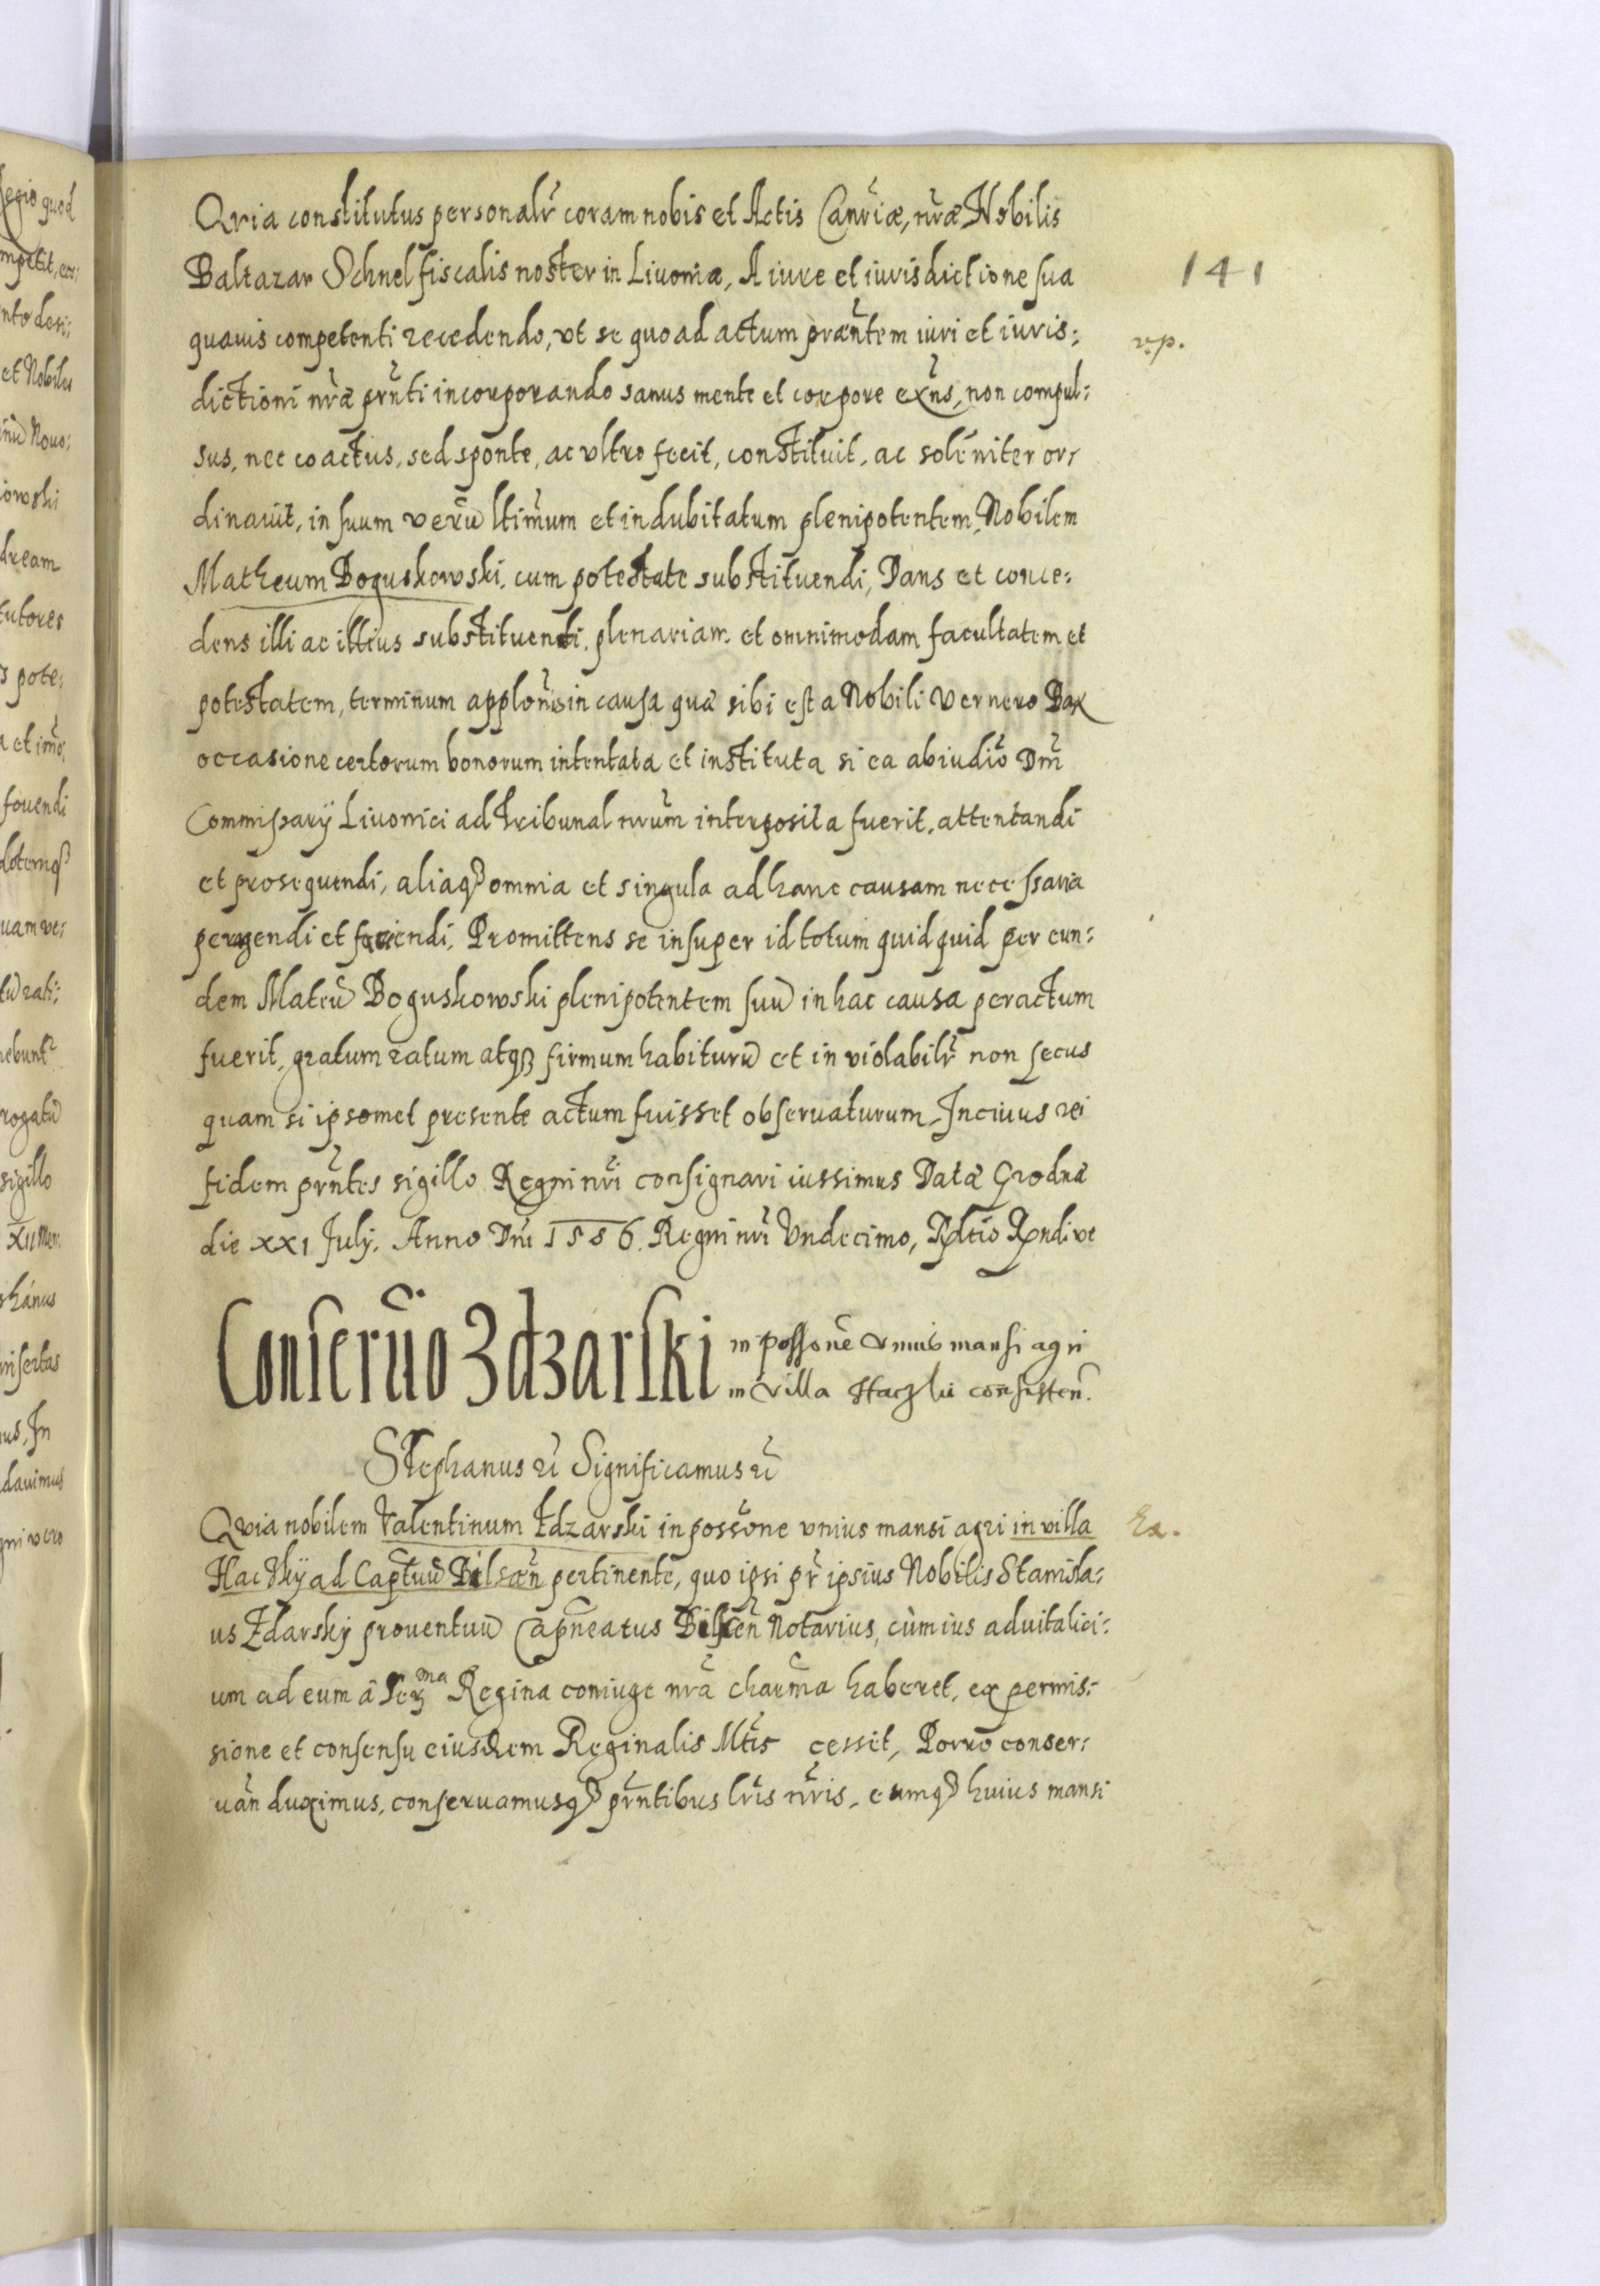 Qvia constitutus personalr̃ coram nobis et Actis Canr̃iæ, nr̃æ Nobilis
Baltazar Schnel fiscalis noster in Livonia, A iure et iurisdictione sua
141
quavis competenti recedendo, vt se quoad actum præñtem iuri et iuris:
vp.
dictioni nr̃æ prñti incorporando sanus mente et corpore exñs, non compul:
sus, nec coactus, sed sponte, ac vltro fecit, constituit, ac soleñiter or:
dinavit, in suum verũ ltim̃um et indubitatum plenipotentem, Nobilem
Matheum Boguskowski, cum potestate substituendi, Dans et conce:
dens illi ac illius substituendi, plenariam et omnimodam facultatem et
potestatem, terminum applõnis in causa quæ sibi est a Nobili Vernero Bax
occasione certorum bonorum intentata et instituta si ea abiudiõ Dm̃
Commissarÿ Livonici ad Tribunal nrũm interposita fuerit, attentandi
et prosequendi, aliaqꝫ omnia et singula ad hanc causam necessaria
peragendi et faciendi, Promittens se insuper id totum quidquid per eun:
dem Mateũ Boguskowski plenipotentem suũ in hac causa peractum
fuerit, gratum ratum atqꝫ firmum habiturũ et inviolabilr̃ non secus
quam si ipsomet presente actum fuisset observaturum, In cuius rei
fidem prñtes sigillo Regni nrĩ consignari iussimus Datæ Grodnæ
die XXI July. Anno Dñi 1586. Regni nrĩ Vndecimo, Rdtio Rndi vt
Conseruo Zdzarski in possoñe Vnius mansi agri
in villa Haczki consisten̄.
Stephanus zc̃ Significamus zc̃
Qvia nobilem Valentinum Zdzarski in possoñe vnius mansi agri in villa
Ex.
Haczkÿ ad Captuũ Bilsæñ pertinente, quo ipsi pr̃ ipsius Nobilis Stanisla:
us Zdarskÿ proventuũ Capñeatus Bilsceñ Notarius, cùm ius advitalici:
um ad eum â Serma Regina coniuge nrã charm̃a haberet, ex permis:
sione et consensu eiusdem Reginalis Mt̃is cessit, Porrò conser:
uañ duximus, conseruamusqꝫ prñtibus lrĩs nr̃is, eumqꝫ huius mansi